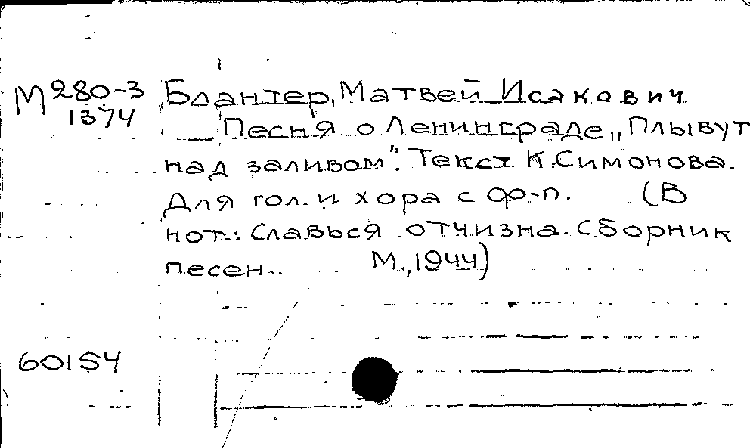 М 280-3 Блантер, Матвей Исакович
1374
Песня о Ленинграде „Плывут
над заливом". Текст К. Симонова.
Для гол. и хора с ф-п. (В
нот.: Славься отчизна. Сборник
песен. М., 1944)
60154